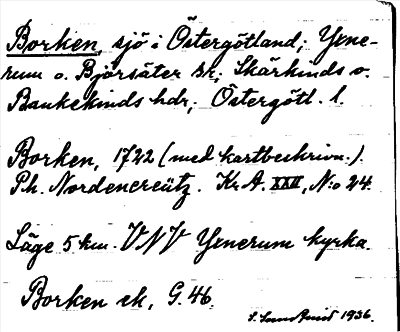 Borken, sjö i Östergötland; Yxne-
rum o. Björsäter sr; Skärkinds o.
Bankekinds hdr; Östergötl. l.
Borken, 1722 (med kartbeskrivn.).
Ph. Nordencreütz. Kr.A. XXII, N:o 24.
Läge 5 km. VNV Yxnerum kyrka.
Borken ek, G. 46.
1936.